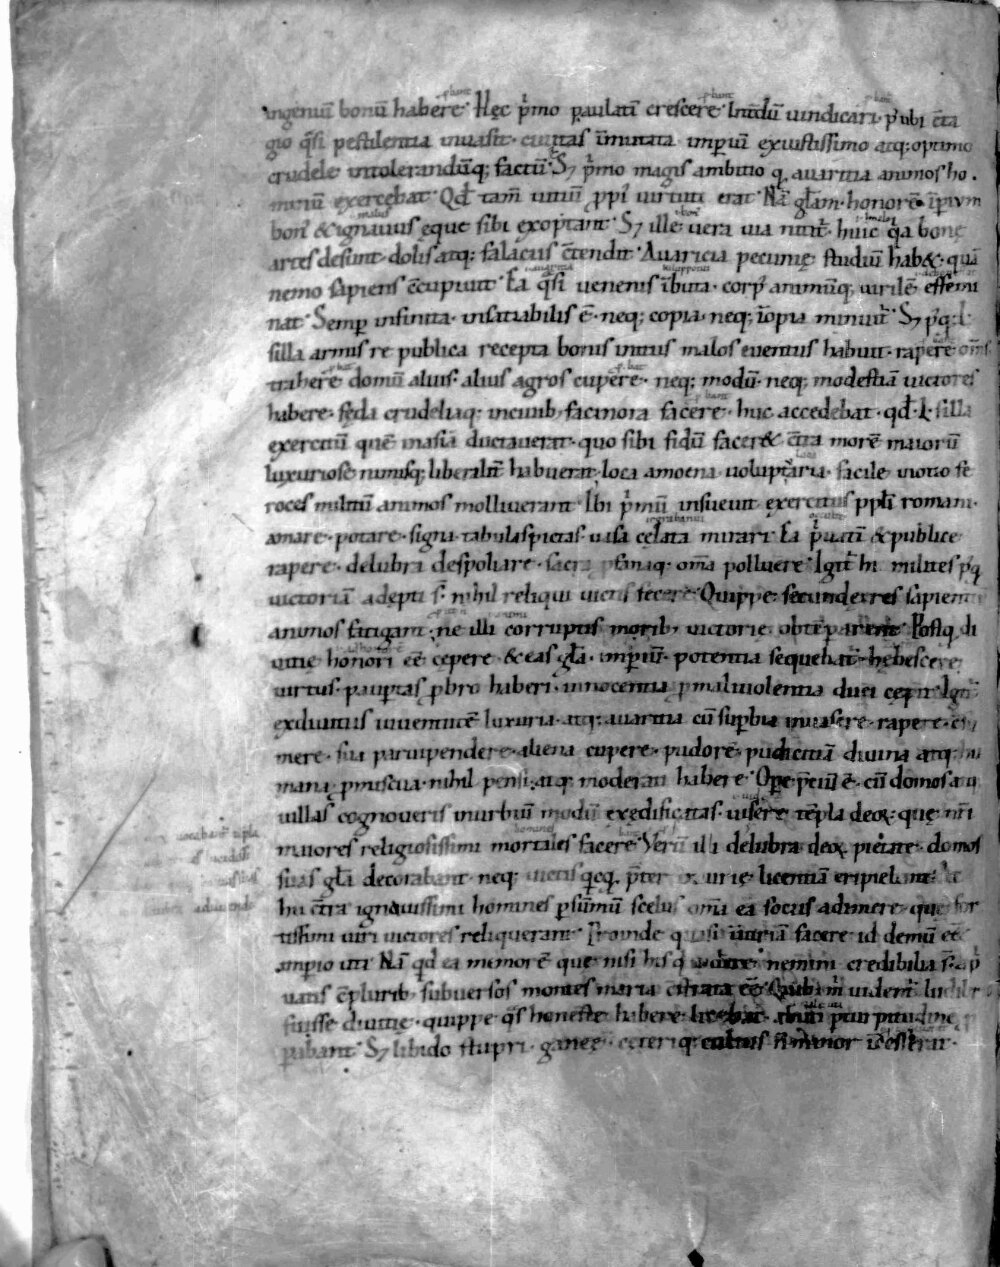 ingeniū bonū habere· Hęc p̄mo paulatī crescere· Intdū uindicari· p̄ ubi c̄ta
gio q̄si pestilentia inuasit· ciuitas īmutata imp̄iū exiustissimo atq; optimo
crudele intolerandūq; factū· S; p̄mo magis ambitio q̄ auaritia animos ho
minū exercebat· Qđ tam̄ uitiū ꝓpi uirtuti erat· Nā gl̄am· honorē· īperium
bon̄ & ignauus eque sibi exoptant· S; ille uera uia nitit̄· huic q̄a bonę
artes desunt· dolis atq; fallaciis c̄tendit· Auaricia pecunię studiū hab&· quā
nemo sapiens c̄cupiuit· Ea q̄si uenenis ībuta· corp̄ animūq; uirilē effemi
nat· Semp̄ infinita· insatiabilis ē· neq; copia· neq; īopia minuit̄· S; p̄q· L·
silla armis re publica recepta bonis initiis malos euentus habuit· rapere om̄s
trahere· domū alius· alius agros cupere· neq; modū· neq; modestiā uictores
habere· fęda crudeliaq; inciuib; facinora facere· huc accedebat· qđ L· silla
exercitū quē inasia ductauerat· quo sibi fidū facer& c̄tra morē maiorū
luxuriose nimisq; liberalit̄ habuerat· loca amoena uoluptaria· facile inotio fe
roces militū animos molliuerant· Ibi p̄mū insueuit exercitus ppłi romani·
amare· potare· signa tabulas pictas· uasa cęlata mirari· Ea p̄uatī & publice
rapere· delubra despoliare· sacra ꝓfanaq; om̄a polluere· Igit̄ hi milites p̄q̄
uictoriā adepti s̄· nihil reliqui uictis fecere· Quippe secundę res sapientiū
animos fatigant· ne illi corruptis morib; uictorię obtēperarent· Postq̄ di
uitię honori eē cępere & eas gl̄a· imp̄iū· potentia sequebat̄· hebescere
uirtus· paup̄tas ꝓbro haberi· innocentia ꝓ maliuolentia duci cępit· Igit̄
exdiuitiis iuuentutē luxuria· atq; auaritia cū sup̄bia inuasere· rapere· c̄su
mere· sua paruipendere· aliena cupere· pudorē· pudicitiā diuina atq; hu
mana ꝓmiscua· nihil pensi atq; moderati habere· Opę p̄ciū ē· cū domos atq;
uillas cognoueris inurbiū modū exędificatas· uisere tēpla deoꝝ· que nr̄i
maiores religiosissimi mortales facere· Verū illi delubra deoꝝ pietate· domos
suas gl̄a decorabant· neq; uictis q̄cq̄ p̄ter iniurię licentiā eripiebant· At
hi c̄tra ignauissimi homines p̄ sūmū scelus om̄ia ea sociis adimere· que for
tissimi uiri uictores reliquerant· Proinde quasi īiuriā facere id demū eēt
imperio uti· Nā qđ ea memorē que nisi his q̄ uidere nemini credibilia s̄· ap̄
uatis c̄plurib; subuersos montes maria c̄strata eē· Quib; m̄ uident̄ ludibrio
fuisse diuitię· quippe q̄s honeste habere licebat· abuti p̄ turpitudinē p
p̄abant· S; libido stupri· ganeę· ceteriq; cultus n̄ minor īcesserat·